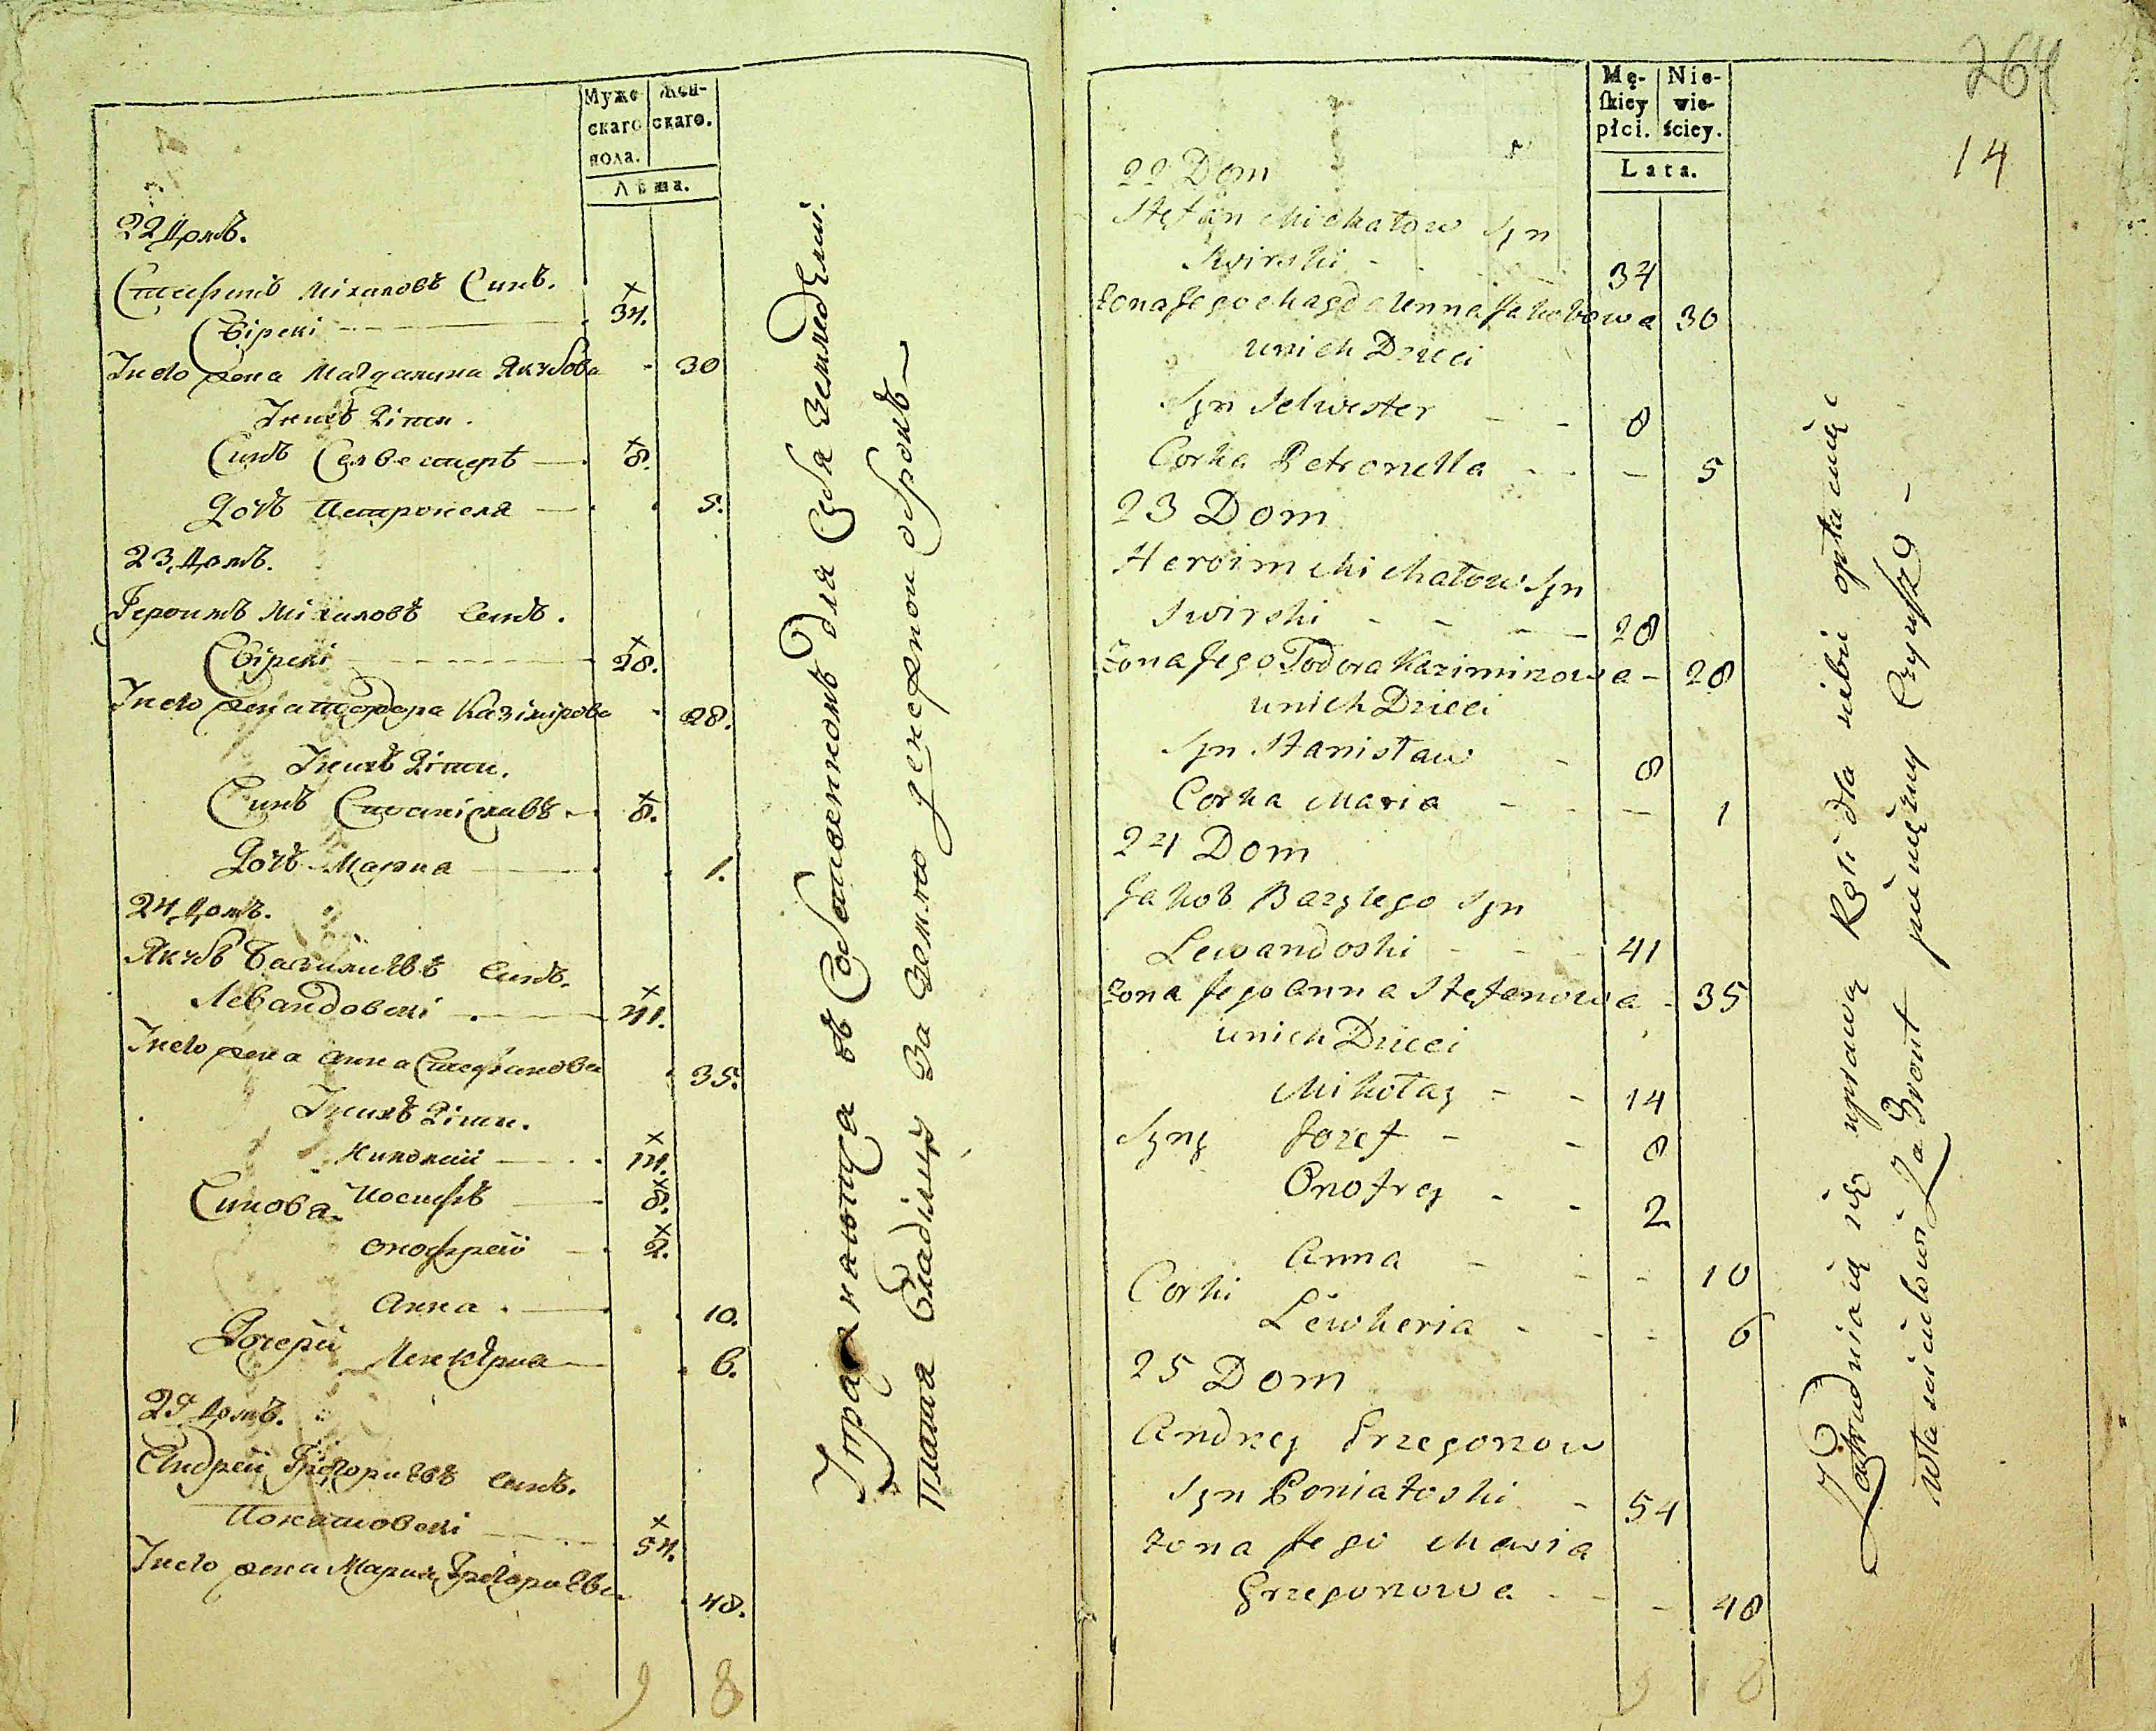 Муже
скаго
пола.
Жен-
скаго.
Лѣта.
22 Домъ.
Стефанъ Міхаловъ Синъ.
Свірскі 34.
Его жена Магдалина Якубова 30
У нихъ Діти.
Синъ Селвестеръ 8.
Дочъ Петронеля 5.
23 Домъ.
Героимъ Міхаловъ Синъ.
Свірскі 28.
Его жена Теодора Казімірова 28.
У нихъ Діти.
Синъ Станіславъ 8.
Дочъ Марна 1.
24 Домъ.
Якубъ Базилиевъ Синъ.
Левандовскі 41.
Его жена Анна Стефанова 35.
У нихъ Діти.
Николай 14.
Синова Иосифъ 8.
Онофрей 2.
Анна 10.
Дочери Левкерия 6.
25 Домъ.
Андрей Григориевъ Синъ.
Понятовскі 54.
Его жена Мария Григориева 48.
9 8
в Собственномъ для Себя Земледелии.
Плата Владілцу За Землю денежной оброкъ
Mę-
skiey
płci.
Nie-
wie-
ściey.
Lata.
264
14
22 Dom
Stefan Michałow Syn
Swirski 34
Zona Jego Magdalenna Jakobowa 30
u nich Dzieci
Syn Selwester 8
Corka Petronella 5
23 Dom
Heroim Michałow Syn
Swirski 28
Zona Jego Todora Kazimirzowa 28
u nich Dzieci
Syn Stanisław 8
Corka Maria 1
24 Dom
Jakob Bazylego Syn
Lewandoski 41
Zona Jego Anna Stefanowa 35
u nich Dzieci
Mikołay 14
Syny Jozef 8
Onofrey 2
Anna 10
Corki Lewkeria 6
25 Dom
Andrzey Grzegorzow
Syn Poniatoski 54
Zona Jego Maria
Grzegorzowa 48
9 8
Zatrudniaią się uprawą Roli dla siebie opłacaiąc
właścicielowi Za Gront pieniężny Czynsz